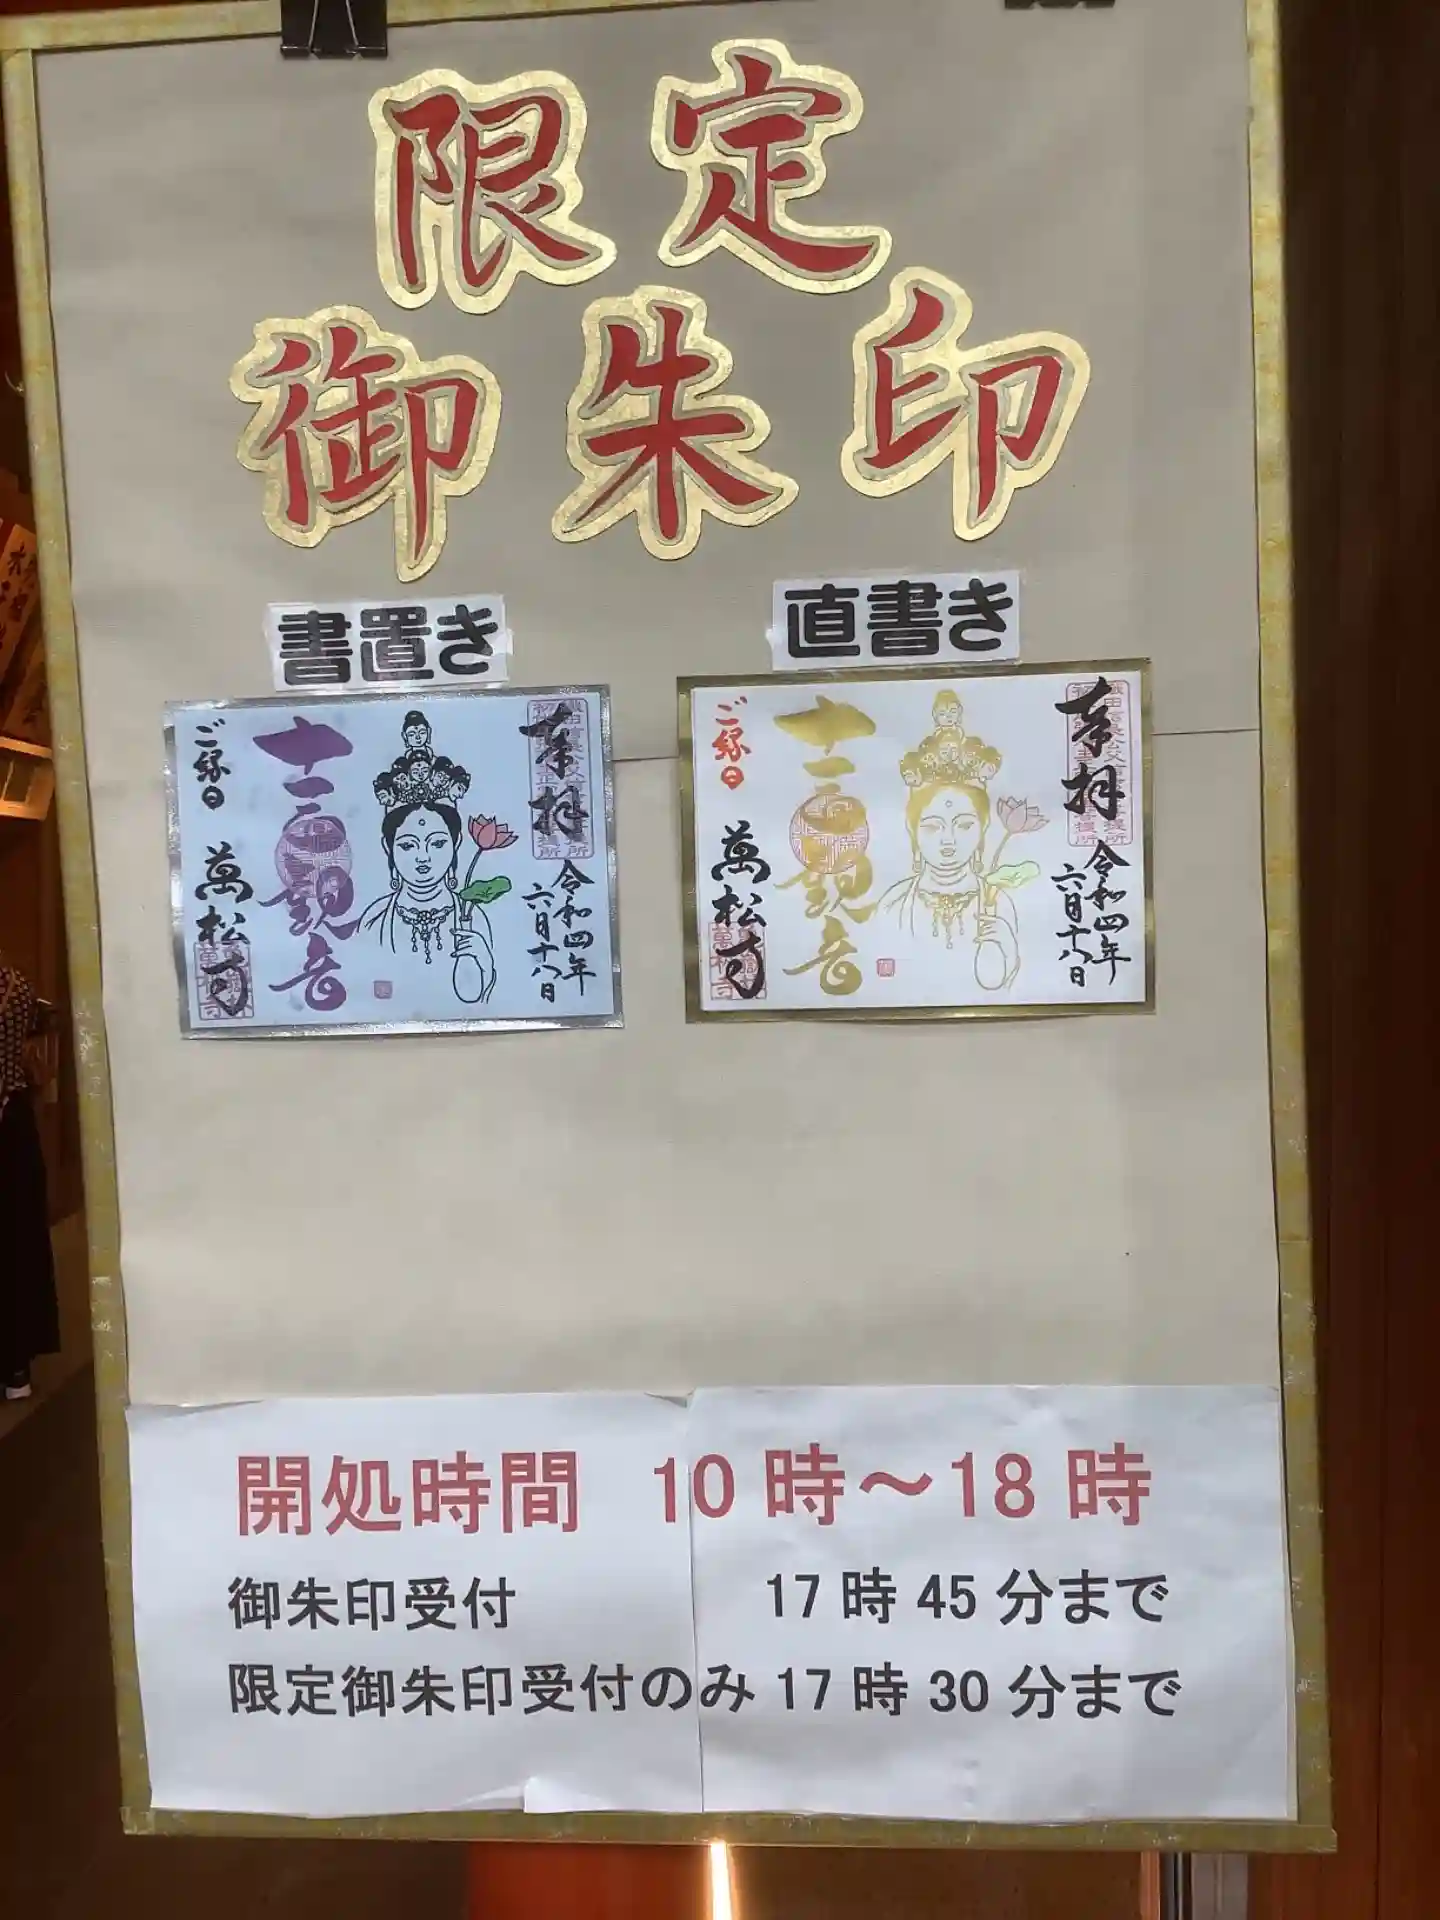 限定
御朱印
書置き
直書き
奉拝
令和四年
六月十八日
十一面観音
ご縁日
萬松寺
奉拝
令和四年
六月十八日
十一面観音
ご縁日
萬松寺
開処時間 10時～18時
御朱印受付 17時45分まで
限定御朱印受付のみ 17時30分まで